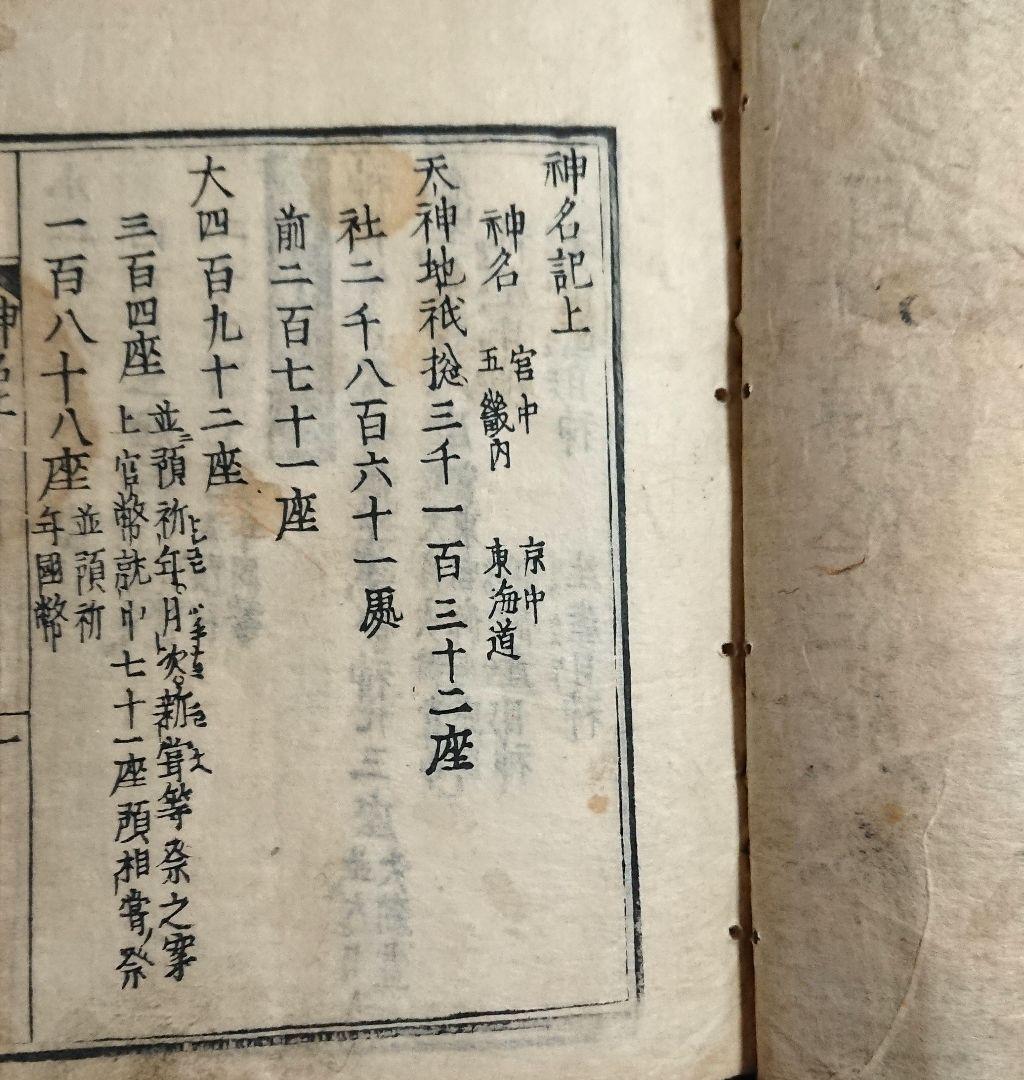 神名記上
神名 宮中 京中
五畿内 東海道
天神地祇惣三千一百三十二座
社二千八百六十一処
前二百七十一座
大四百九十二座
三百四座 並預祈年月次新甞等祭之案
上官幣就中七十一座預相甞祭
一百八十八座 並預祈
年國幣
神名上
一